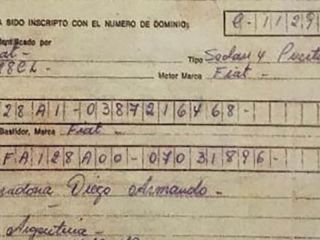 A SIDO INSCRIPTO CON EL NUMERO DE DOMINIO: C-1129
dentificado por
at -
Tipo Sedan 4 Puert
28CL -
Motor Marca Fiat -
28A1-038721646 8-
Bastidor, Marca Fiat -
FA128A00-07031896-
radona Diego Armando -
Argentina -